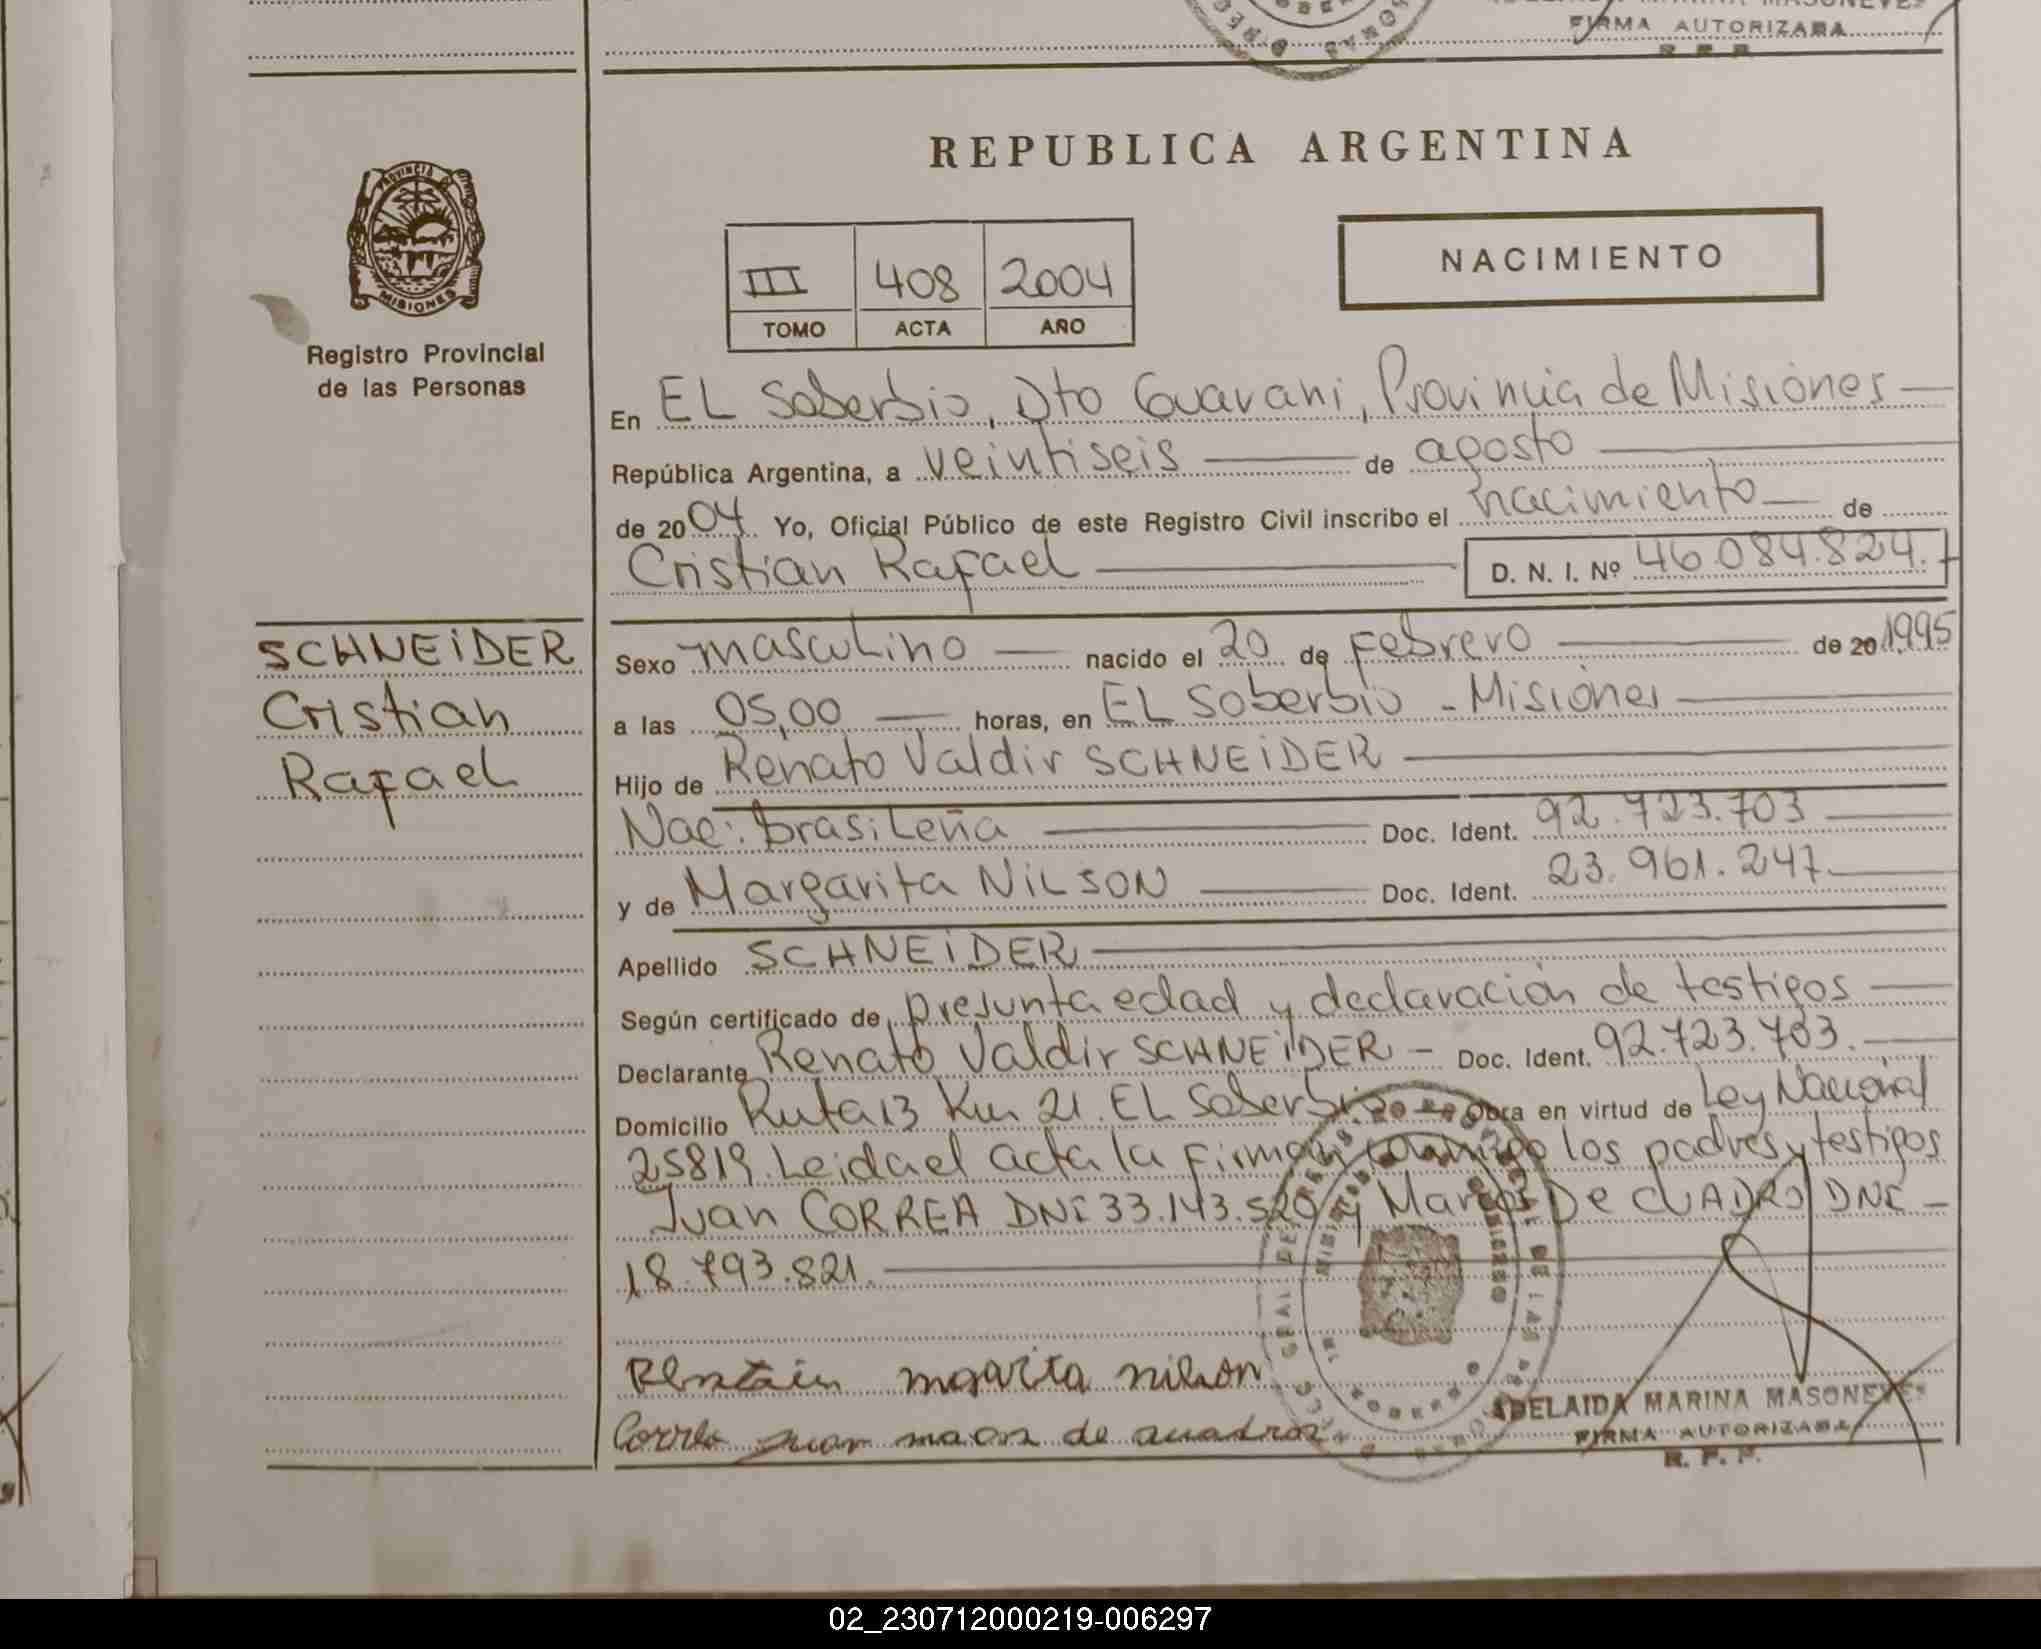 FIRMA AUTORIZADA
REPUBLICA ARGENTINA
PROVINCIA DE
MISIONES
Registro Provincial
de las Personas
III 408 2004
TOMO ACTA AÑO
NACIMIENTO
En EL Soberbio, Dto Guarani, Provincia de Misiones
República Argentina, a veintiseis de agosto
de 2004 Yo, Oficial Público de este Registro Civil inscribo el nacimiento de
Cristian Rafael D. N. I. Nº 46.084.824.
SCHNEIDER
Cristian
Rafael
Sexo masculino nacido el 20 de Febrero de 20 1995
a las 05,00 horas, en EL Soberbio - Misiones
Hijo de Renato Valdir SCHNEIDER
Nac: brasileña Doc. Ident. 92.723.703
y de Margarita NILSON Doc. Ident. 23.961.247
Apellido SCHNEIDER
Según certificado de presunta edad y declaración de testigos
Declarante Renato Valdir SCHNEIDER - Doc. Ident. 92.723.703.
Domicilio Ruta 13 Km 21. EL Soberbio Obra en virtud de Ley Nacional
25819. Leida el acta la firman conmigo los padres y testigos
Juan CORREA DNI 33.143.520 y Marcos De CUADRO DNI -
18.793.821.
margarita nilson
Correa Juan de cuadros
ADELAIDA MARINA MASONEVES
FIRMA AUTORIZADA
R. P. P.
02_230712000219-006297